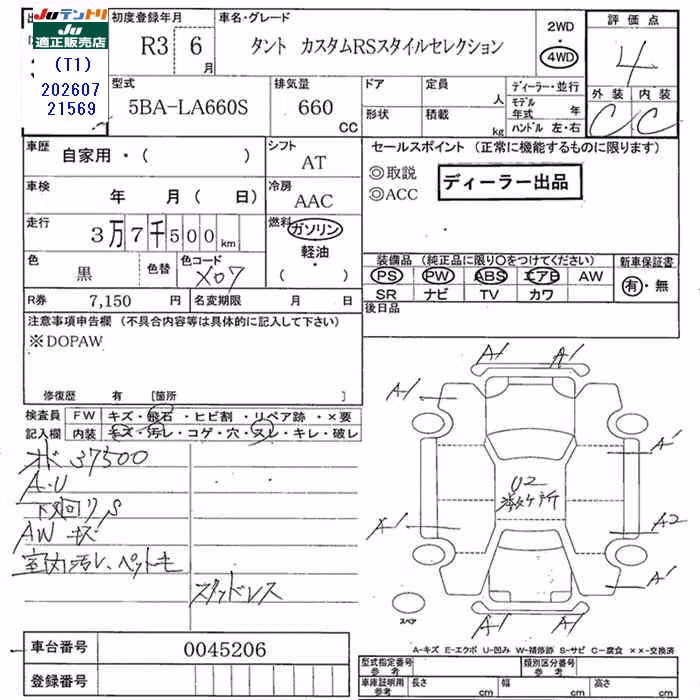 Juテントリ
Ju適正販売店
(T1)
202607
21569
初度登録年月
R3 6月
車名・グレード
タント カスタムRSスタイルセレクション
2WD
・
4WD
評価点
4
外装 内装
C C
型式
5BA-LA660S
排気量
660
CC
ドア
形状
定員
人
積載
kg
ディーラー・並行
モデル年式 年
ハンドル 左・右
車歴 自家用・( )
シフト
AT
車検 年 月( 日)
冷房
AAC
走行 3万7千500km
燃料
ガソリン
・
軽油
( )
色 黒
色替
色コード
X07
R券 7,150 円
名変期限 月 日
セールスポイント (正常に機能するものに限ります)
◎取説
◎ACC
ディーラー出品
装備品 (純正品に限り○をつけてください)
PS PW ABS エアB AW
SR ナビ TV カワ
新車保証書
有・無
後日品
注意事項申告欄 (不具合内容等は具体的に記入して下さい)
※DOPAW
修復歴 有 [箇所 ]
検査員
記入欄
FW キズ・飛石・ヒビ割・リペア跡・×要
内装 キズ・汚レ・コゲ・穴・スレ・キレ・破レ
オド 37500
A・U
下廻りS
AW キズ
室内汚レ、ペット毛
スタッドレス
A1 A1
A1
A1
U2
A1 A2
A1
A1 A1
スペア
A-キズ E-エクボ U-凹み W-補修跡 S-サビ C-腐食 ××-交換済
車台番号 0045206
登録番号
型式指定番号
参考
類別区分番号
参考
車庫証明用
参考
長さ cm
幅 cm
高さ cm